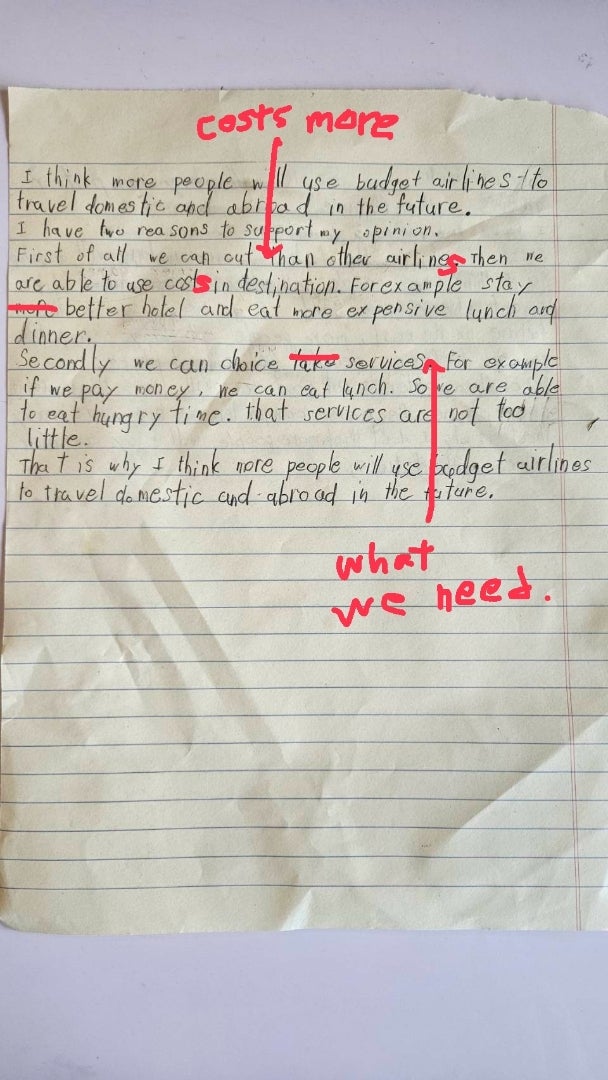 costs more
I think more people will use budget airlines to
travel domestic and abroad in the future.
I have two reasons to support my opinion.
First of all we can cut than other airlines. Then we
are able to use costs in destination. For example stay
more better hotel and eat more expensive lunch and
dinner.
Secondly we can choice take services. For example
if we pay money, we can eat lunch. So we are able
to eat hungry time. that services are not too
little.
That is why I think more people will use budget airlines
to travel domestic and abroad in the future.
what
we need.